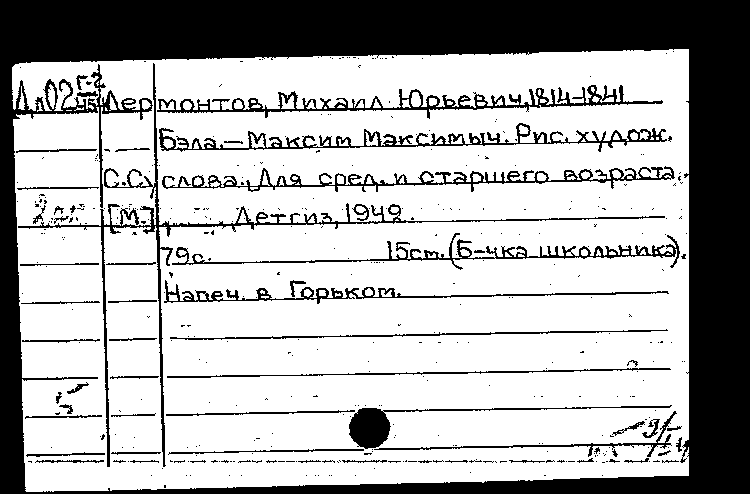 Дл02 Г-2/45 Лермонтов, Михаил Юрьевич, 1814-1841
Бэла.—Максим Максимыч. Рис. худож.
С.Суслова. Для сред. и старшего возраста.
2 эк. [М.], Детгиз, 1949.
79с. 15см. (Б-чка школьника).
Напеч. в Горьком.